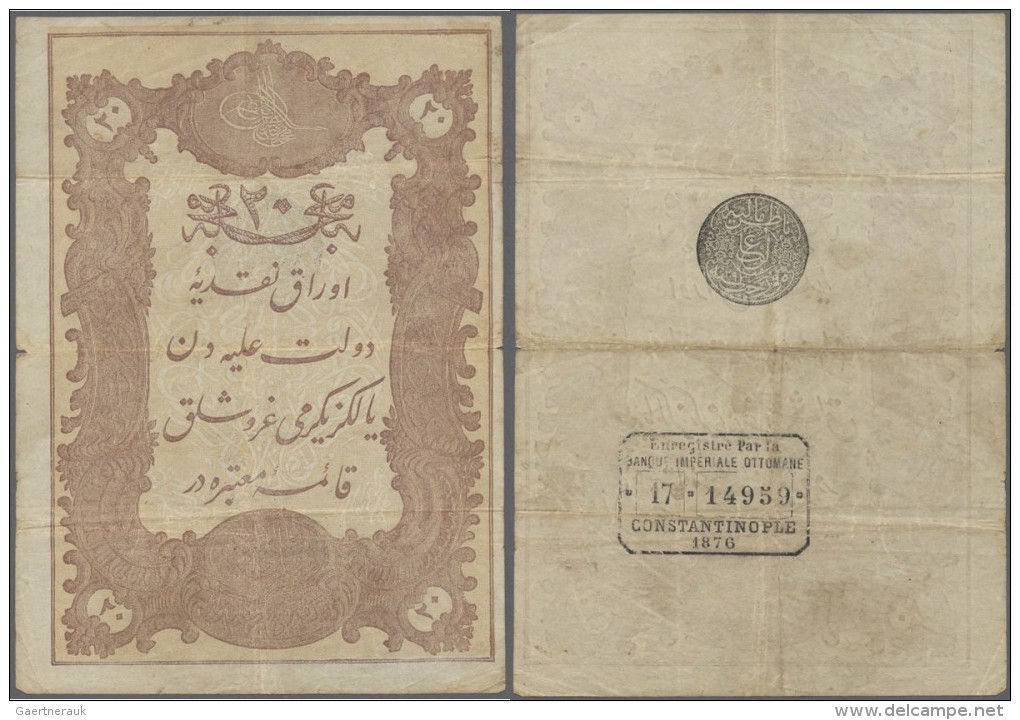 ٢٠
٢٠
٢٠
اوراق نقديۀ
دولت عليه دن
يالكز يكرمى غروشلق
قائمۀ معتبره در
٢٠
٢٠
Enregistré Par la
BANQUE IMPERIALE OTTOMANE
17 14959
CONSTANTINOPLE
1876
Gaertnerauk
delcampe.net